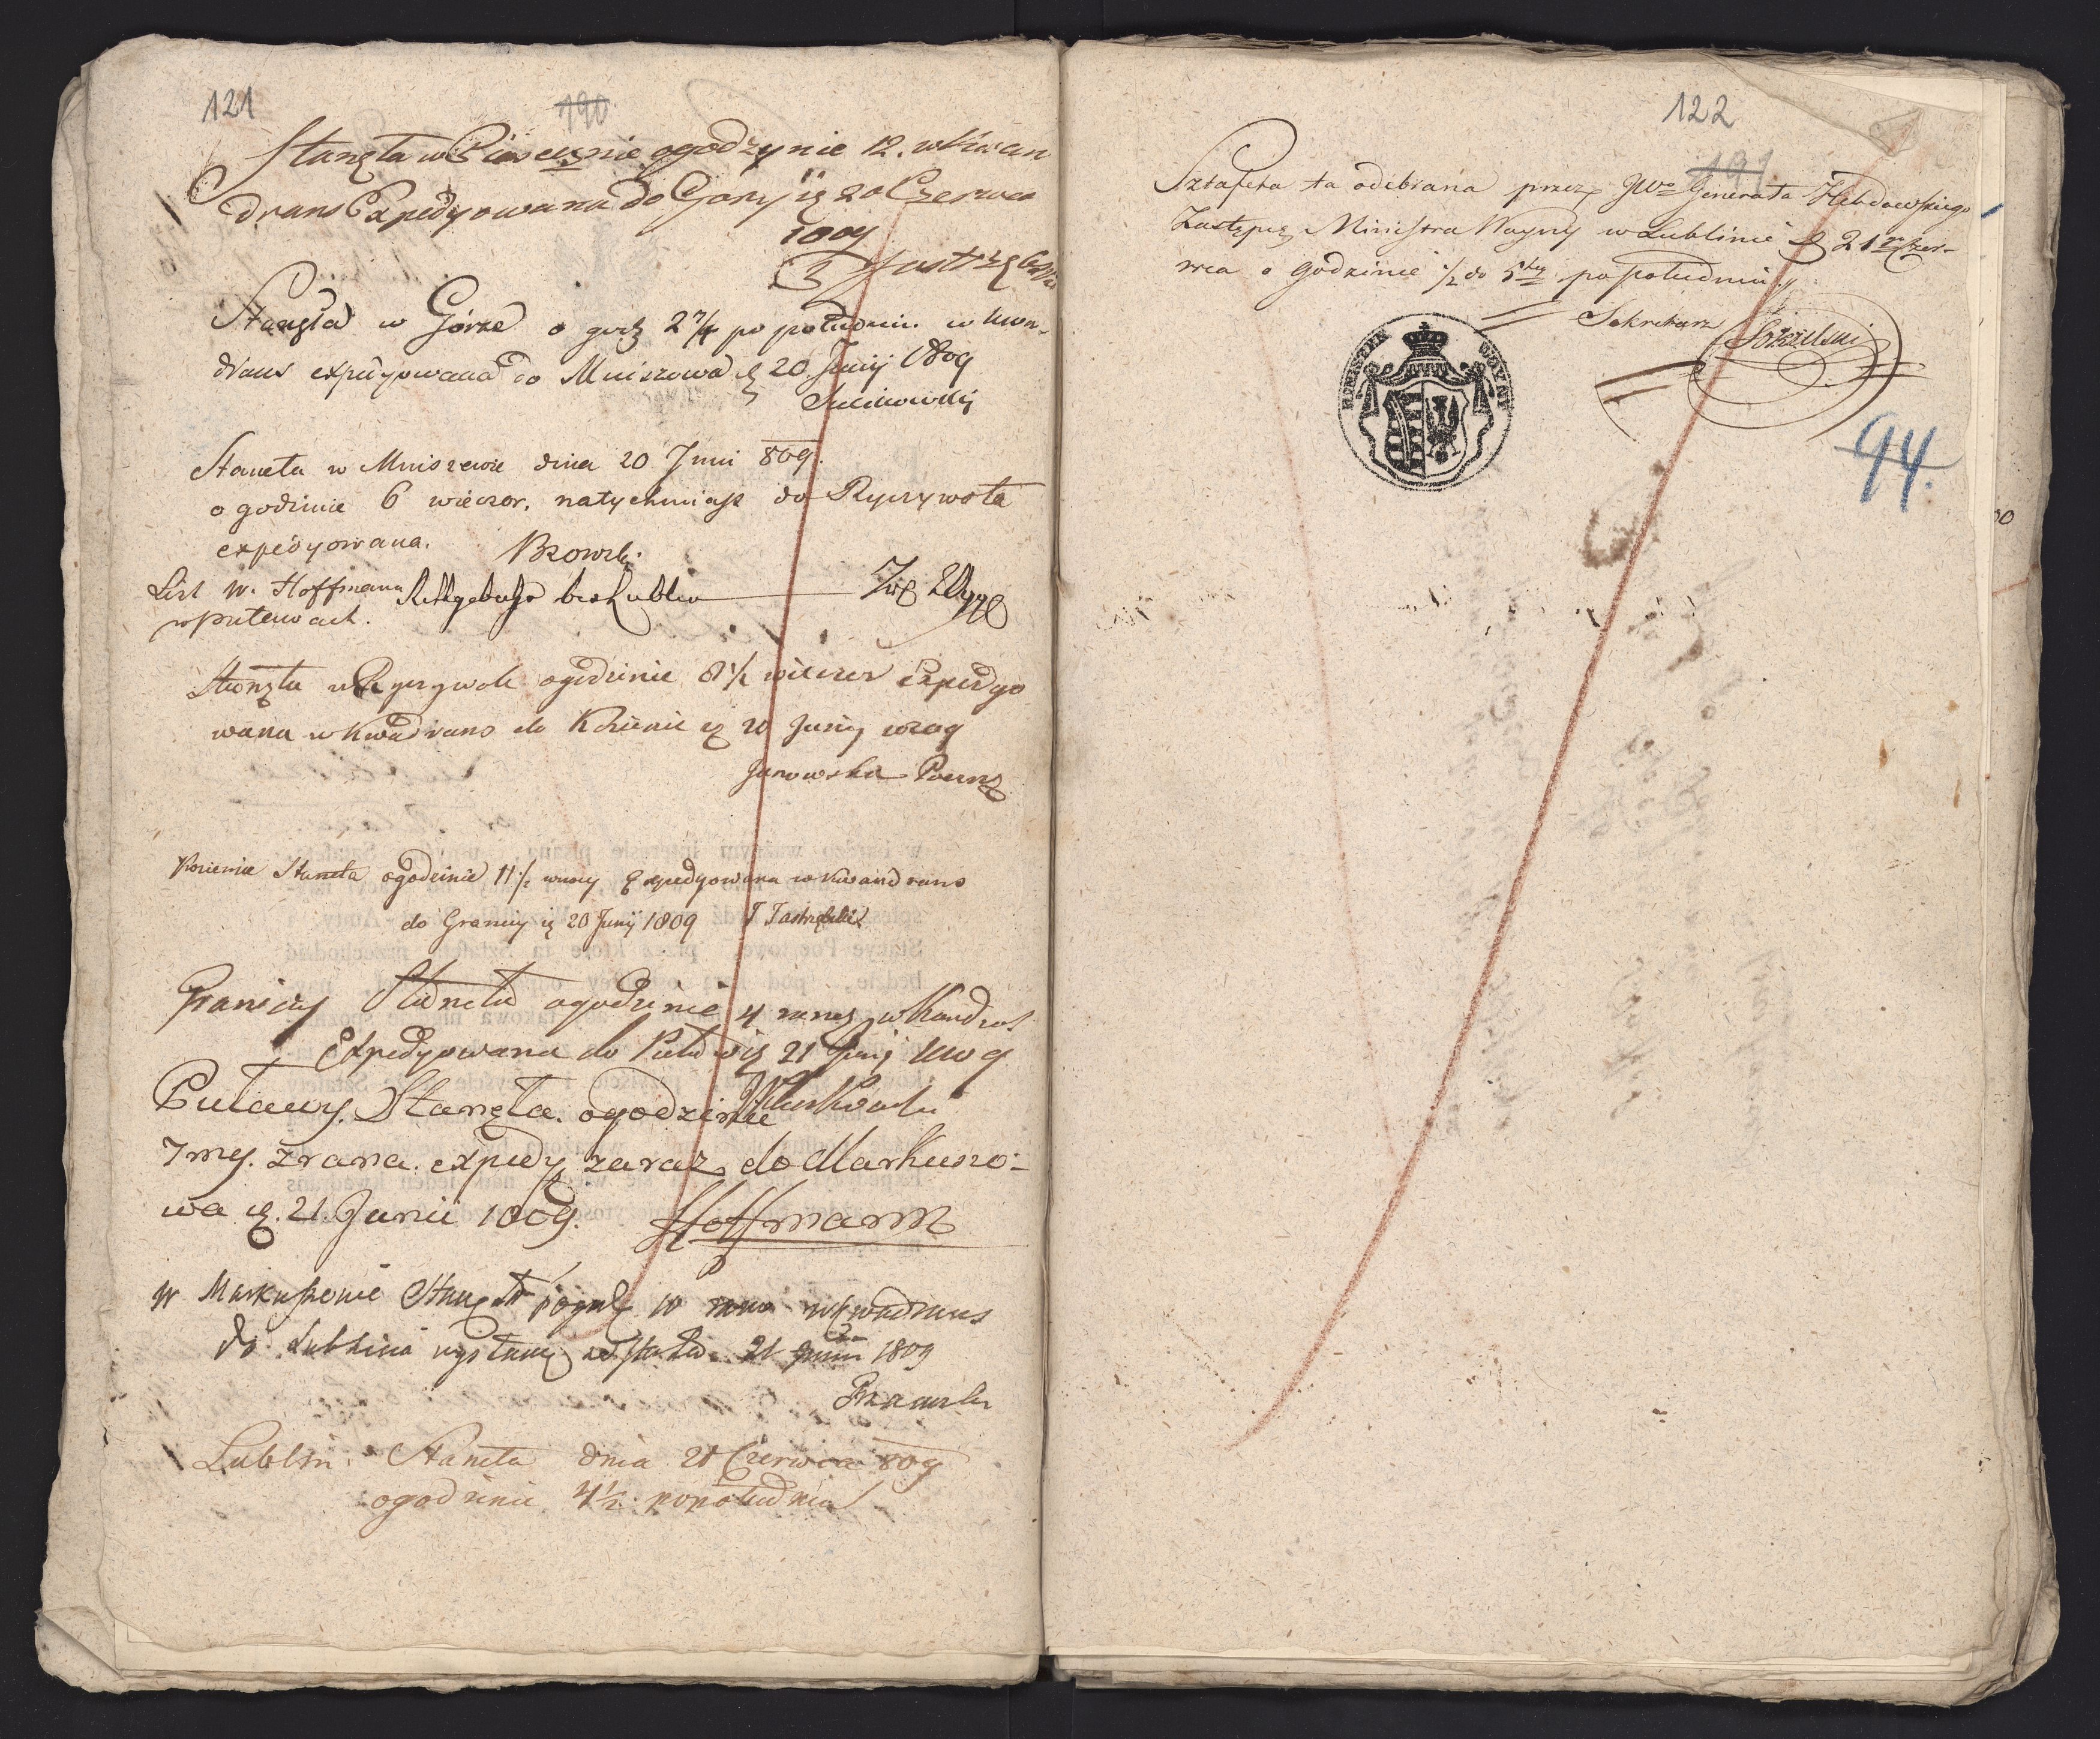 121
190
Stanęła w Piasecznie o godzynie 12. w Kwan
drans Expedyowana do Gory d. 20 Czerwca
1809
Stanęła w Górze o godz 2 3/4 po południu. w kwa-
drans expedyowana do Mniszewa d. 20. Junij 1809
Stanęła w Mniszewie dnia 20 Juni 809.
o godzinie 6 wieczor. natychmiast do Ryczywoła
expedyowana.
List W. Hoffmana
w Puławach.
Stanęła w Ryczywole o godzinie 8 1/2 wieczor Expedyo
wana w Kwadrans do Kozienic d. 20 Junij 1809
Janowska
Kozienice Stanęła o godzinie 11 1/2 w nocy Expedyowana w Kwandrans
do Granicy d. 20 Junij 1809 J Jastrzębski
Granicy Stanęła o godzinie 4 rano w Kandras
Expedyowana do Puław d. 21 Junij 1809
Puławy. Stanęła. o godzinie
7mej. z rana. expedy. zaraz do Markuszo-
wa d. 21. Junii 1809. Hoffmann
W Markuszowie Stanęła o godz 10 rano w Kwadrans
do Lublina 21 Junii 1809
Lublin. Stanęła dnia 21 Czerwca 809
o godzinie 4 1/2 popołudniu
122
191
Sztafeta ta odebrana przez JWo Generała Hebdowskiego
Zastępcę Ministra Woyny w Lublinie d. 21 Czer-
wca o godzinie 1/2 do 5tey popołudniu
Sekretarz
MINISTER WOYNY
94.